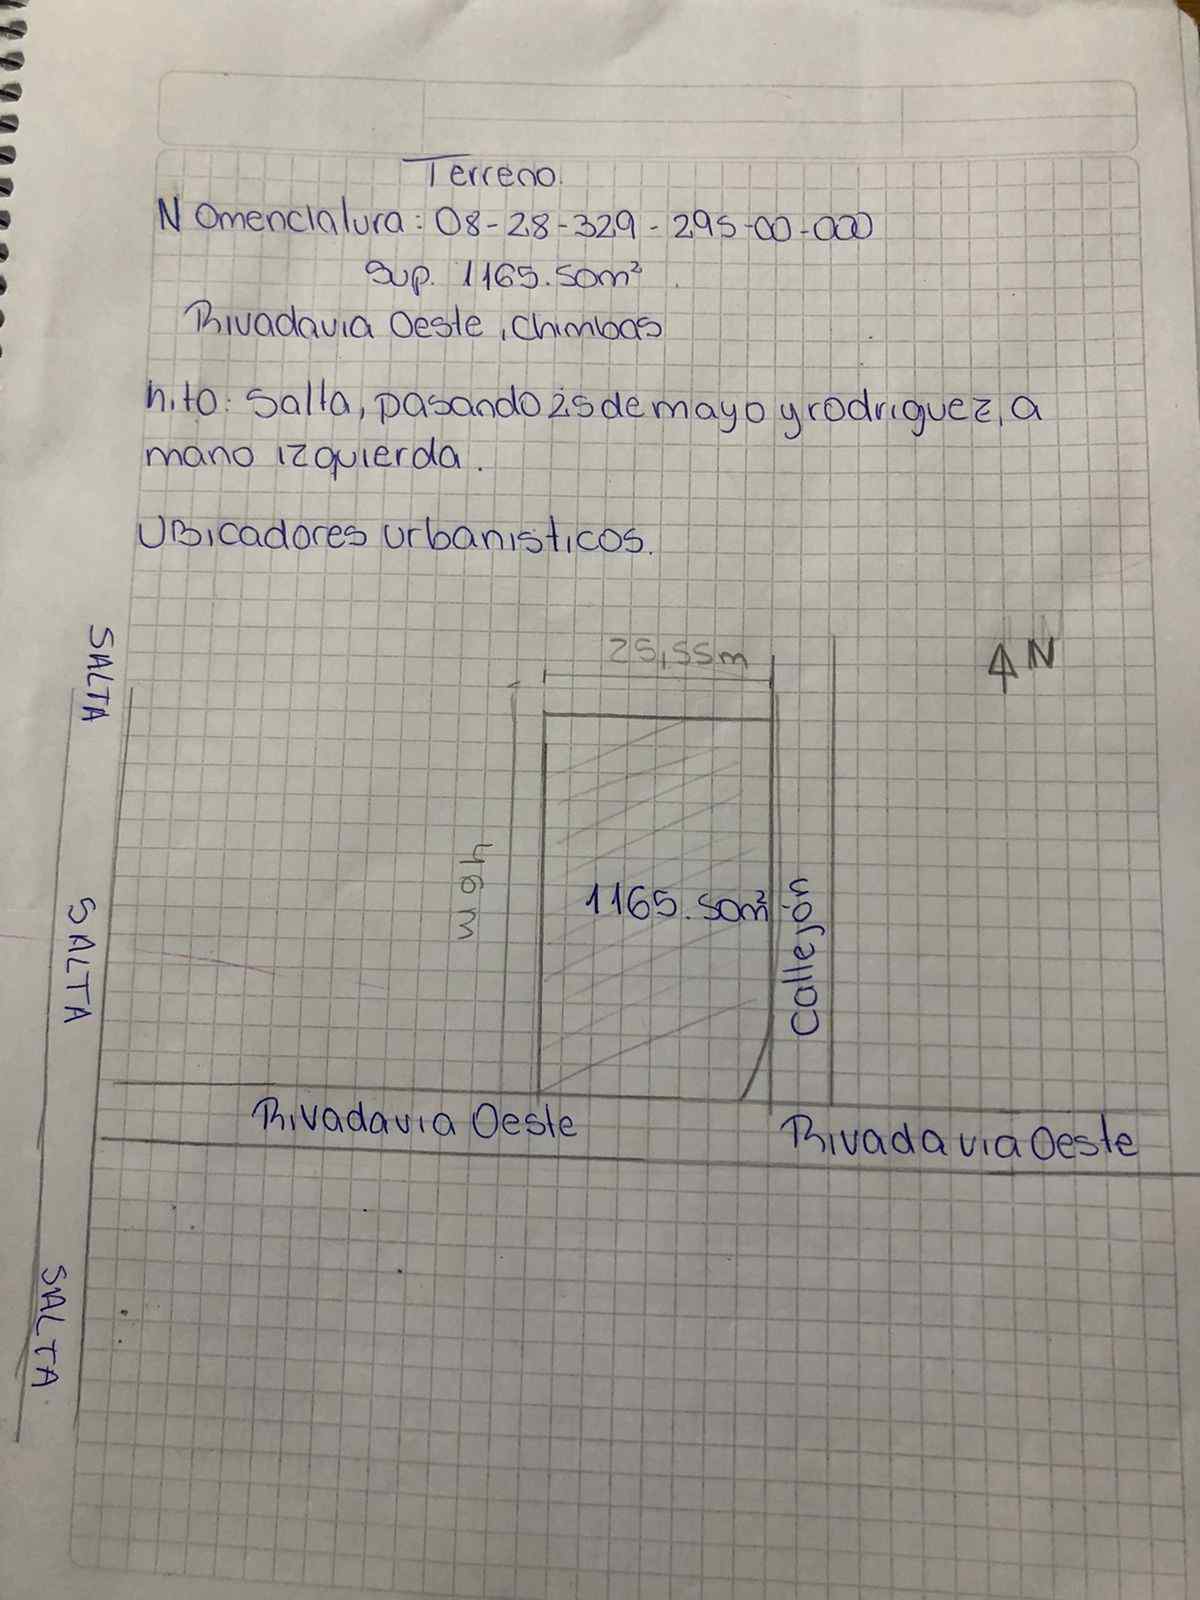 Terreno.
Nomenclatura: 08-28-329-295-00-000
Sup. 1165.50m²
Rivadavia Oeste, Chimbas
hito: Salta, pasando 25 de mayo y rodriguez, a
mano izquierda.
UBicadores urbanisticos.
SALTA
25,55m
N
46 m
1165.50m²
Callejón
SALTA
Rivadavia Oeste
Rivadavia Oeste
SALTA